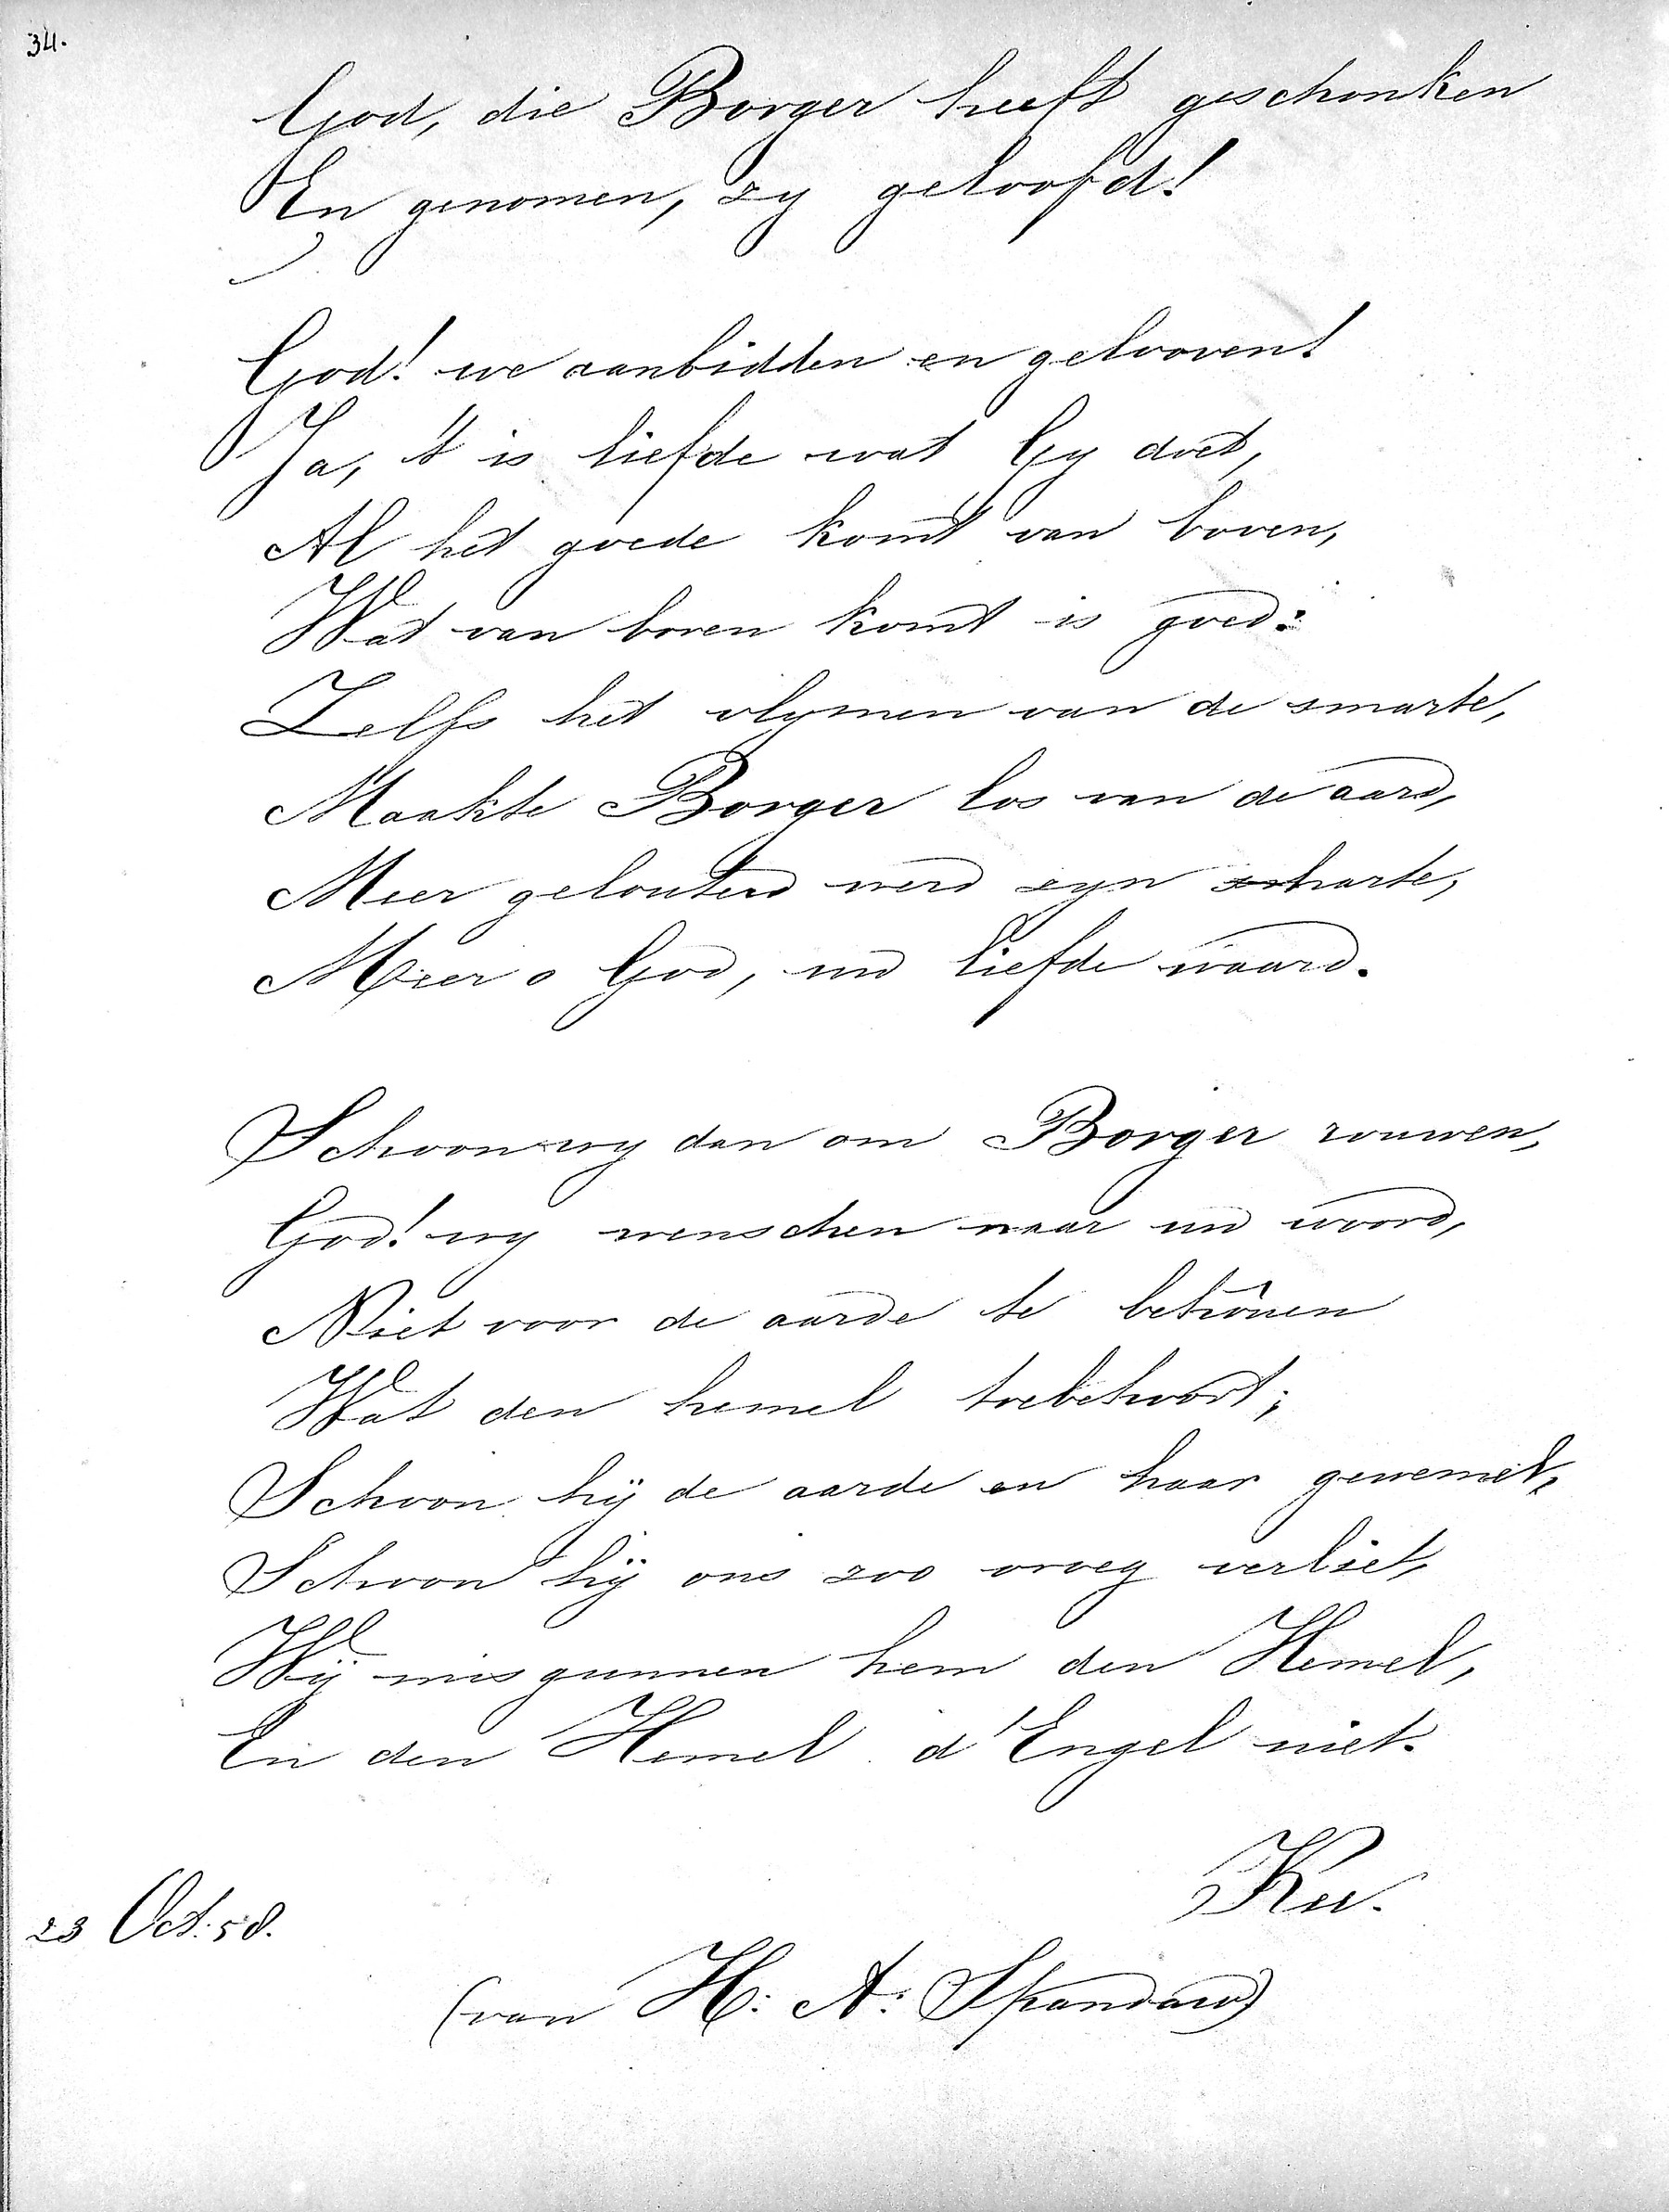 34.
God, die Borger heeft geschonken
En genomen, zy geloofd!
God! we aanbidden en gelooven!
Ja, 't is liefde wat Gy doet,
Al het goede komt van boven,
Wat van boven komt is goed:
Zelfs het vlymen van de smarte,
Maakte Borger los van de aard,
Meer gelouterd werd zyn harte,
Meer o God, uw liefde waard.
Schoon wy dan om Borger rouwen,
God! wy wenschen naar uw woord,
Niet voor de aarde te behoûen
Wat den hemel toebehoort;
Schoon hij de aarde en haar gewemel,
Schoon hij ons zoo vroeg verliet,
Wij misgunnen hem den Hemel,
En den Hemel d'Engel niet.
23 Oct. 58.
(van H. A. Spandaw)